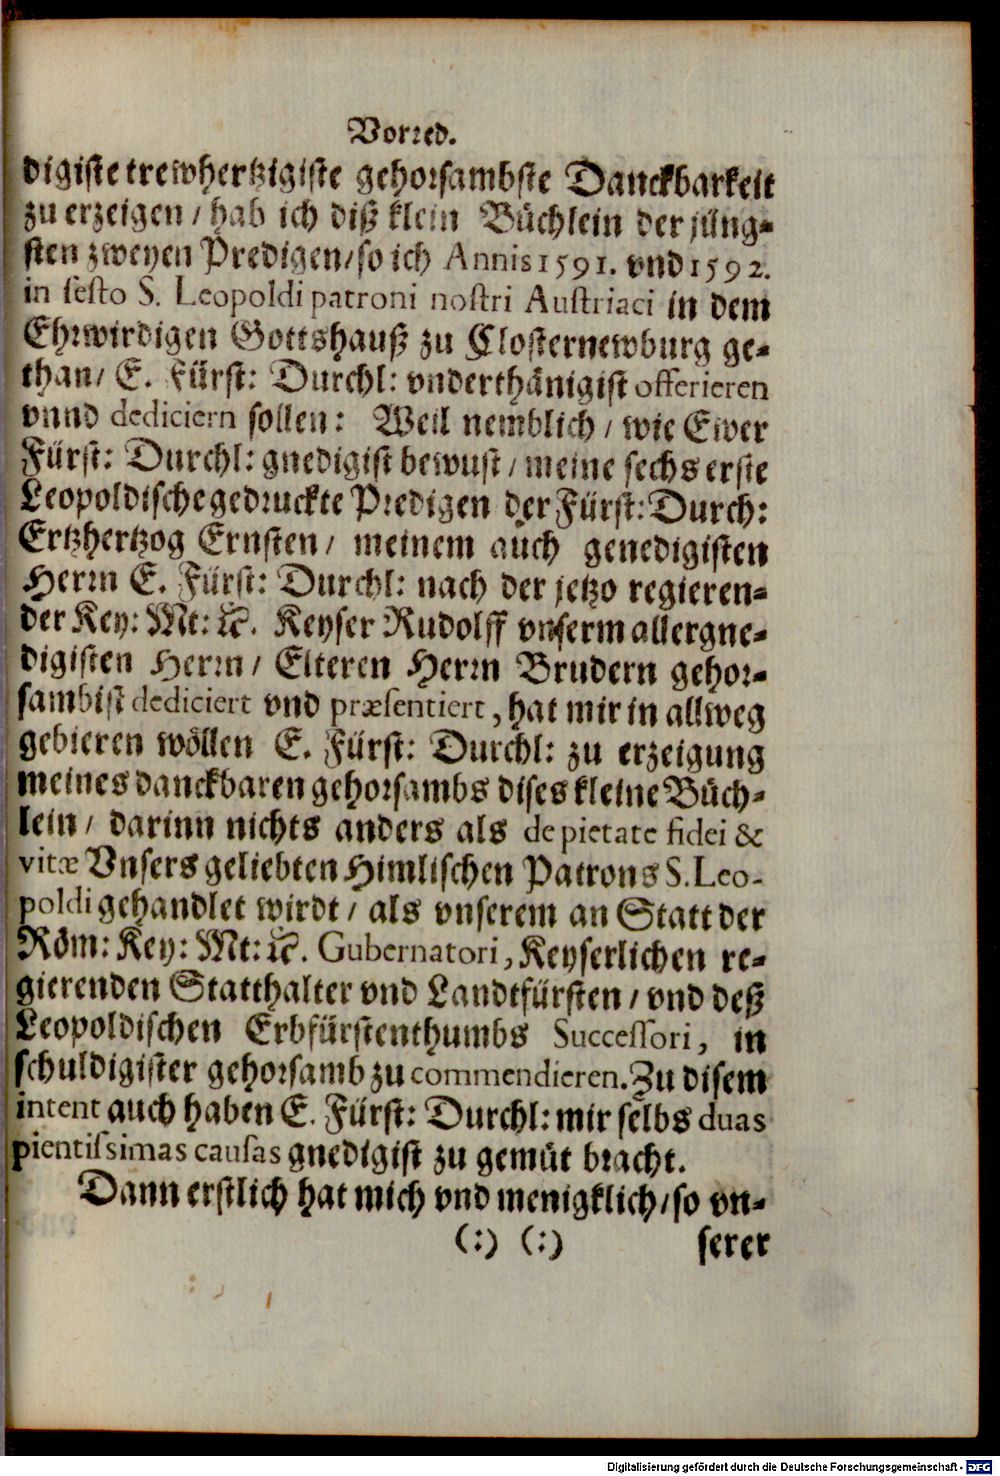 Vorred.
digiste trewhertzigiste gehorsambste Danckbarkeit
zu erzeigen / hab ich diß klein Büchlein der jüng-
sten zweyen Predigen / so ich Annis 1591. vnd 1592.
in festo S. Leopoldi patroni nostri Austriaci in dem
Ehrwirdigen Gottshauß zu Closternewburg ge-
than / E. Fürst: Durchl: vnderthänigist offerieren
vnnd dediciern sollen: Weil nemblich / wie Ewer
Fürst: Durchl: gnedigist bewust / meine sechs erste
Leopoldische gedruckte Predigen der Fürst: Durch:
Ertzhertzog Ernsten / meinem auch genedigisten
Herrn E. Fürst: Durchl: nach der jetzo regieren-
der Key: Mt: ꝛc. Keyser Rudolff vnserm allergne-
digisten Herrn / Elteren Herrn Brudern gehor-
sambist dediciert vnd præsentiert, hat mir in allweg
gebieren wöllen E. Fürst: Durchl: zu erzeigung
meines danckbaren gehorsambs dises kleine Büch-
lein / darinn nichts anders als de pietate fidei &
vitæ Vnsers geliebten Himlischen Patrons S. Leo-
poldi gehandlet wirdt / als vnserem an Statt der
Röm: Key: Mt: ꝛc. Gubernatori, Keyserlichen re-
gierenden Statthalter vnd Landtfürsten / vnd deß
Leopoldischen Erbfürstenthumbs Successori, in
schuldigister gehorsamb zu commendieren. Zu disem
intent auch haben E. Fürst: Durchl: mir selbs duas
pientissimas causas gnedigist zu gemüt bracht.
Dann erstlich hat mich vnd menigklich / so vn-
(:) (:) serer
Digitalisierung gefördert durch die Deutsche Forschungsgemeinschaft - DFG